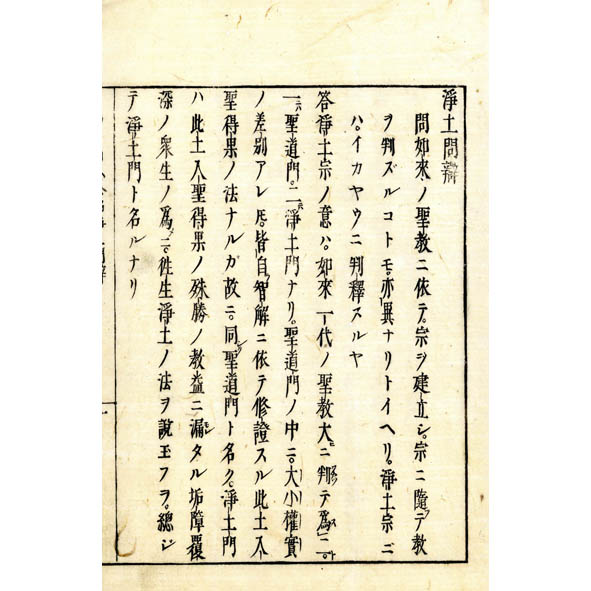 淨土問辨
問如來ノ聖教ニ依テ宗ヲ建立シ。宗ニ隨テ教
ヲ判ズルコトモ。亦異ナリトイヘリ。淨土宗ニ
ハ。イカヤウニ判釋スルヤ
答淨土宗ノ意ハ。如來一代ノ聖教大ニ判テ爲二。
一ニハ聖道門。二ニハ淨土門ナリ。聖道門ノ中ニ。大小權實
ノ差別アレ𪜈。皆自智解ニ依テ修證スル此土入
聖得果ノ法ナルガ故ニ。同ク聖道門ト名ク。淨土門
ハ此土入聖得果ノ殊勝ノ教益ニ漏タル垢障覆
深ノ衆生ノ爲ニ。徃生淨土ノ法ヲ說玉フヲ。總ジ
テ淨土門ト名ルナリ